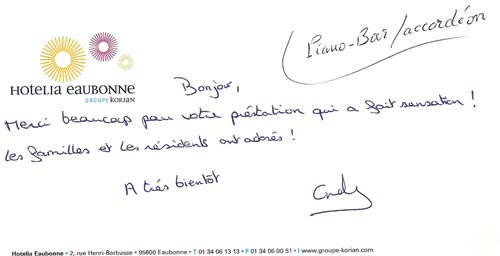 Piano-Bar / accordéon
HOTELIA EAUBONNE
GROUPE KORIAN
Bonjour,
Merci beaucoup pour votre préstation qui a fait sensation !
les familles et les résidents ont adorés !
A très bientôt
Cindy
Hotelia Eaubonne • 2, rue Henri-Barbusse • 95600 Eaubonne • T 01 34 06 13 13 • F 01 34 06 00 51 • I www.groupe-korian.com